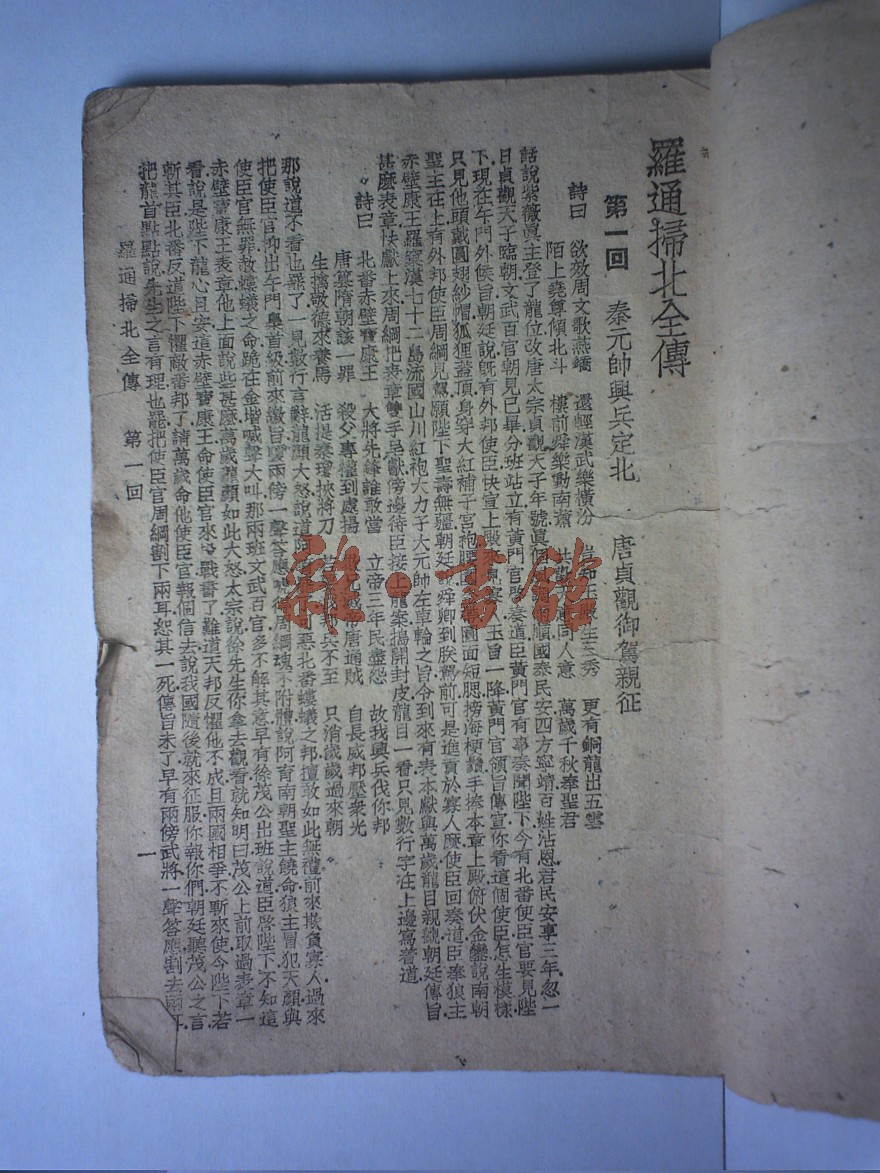 羅通掃北全傳
第一回　秦元帥興兵定北　唐貞觀御駕親征
詩曰　欲效周文歌燕鎬　還輕漢武樂橫汾　更有銅龍出五雲
陌上堯尊傾北斗　樓前舜樂動南薰　共歡　同人意　萬歲千秋奉聖君
話說紫薇眞主登了龍位改唐太宗貞觀天子年號眞個　順國泰民安四方寧靖百姓沾恩君民安享三年忽一
日貞觀天子臨朝文武百官朝見已畢分班站立有黃門官啓奏道臣黃門官有事奏聞陛下今有北番使臣官要見陛
下現在午門外候旨朝廷說旣有外邦使臣快宣上殿　寡人王旨一降黃門官領旨傳宣你看這個使臣怎生模樣
只見他頭戴圓翅紗帽狐狸蓋頂身穿大紅補子宮袍腰圍　圓面短腮搒海梗鬚手捧本章上殿俯伏金鑾說南朝
聖主在上有外邦使臣周綱見駕願陛下聖壽無疆朝廷　舜卿到朕駕前可是進貢於寡人麽使臣回奏道臣奉狼主
赤壁康王羅窠漢七十二島流國山川紅袍大力子大元帥左車輪之旨令到來有表本獻與萬歲龍目親觀朝廷傳旨
甚麽表章快獻上來周綱把表章雙手呈獻傍邊待臣接上龍案搗開封皮龍目一看只見數行字在上邊寫着道
詩曰　北番赤壁寶康王　大將先鋒誰敢當　立帝三年民盡怨　故我興兵伐你邦
唐篡隋朝該一罪　殺父專權到處揚　唐通賊　自長威邦壓衆光
生擒敬德來養馬　活提秦瓊挾將刀　兵不至　只消歲歲過來朝
那說道不看也罷了一見數行言辭龍顏大怒說道阿　可惡北番螻蟻之邦擅敢如此無禮前來欺負寡人過來
把使臣官抑出午門梟首級前來繳旨　兩傍一聲答應　周綱魂不附體說阿育南朝聖主饒命狼主冒犯天顏與
使臣官無罪救螻蟻之命跪在金堦喊聲大叫那兩班文武百官多不解其意早有徐茂公出班說道臣啓陛下不知這
赤壁寶康王表章他上面說些甚麽萬歲龍顏如此大怒太宗說徐先生你拿去觀看就知明曰茂公上前取過表章一
看說是陛下龍心且安這赤壁寶康王命使臣官來　戰番了難道天邦反懼他不成且兩國相爭不斬來使今陛下若
斬其臣北番反道陛下懼敵番邦了請萬歲命他使臣官報個信去說我國隨後就來征服你報你們朝廷聽茂公之言
把龍首點點說先生之言有理也罷把使臣官周綱割下兩耳恕其一死傳旨未了早有兩傍武將一聲答應割去兩耳
羅通掃北全傳　第一回　一
雜·書館